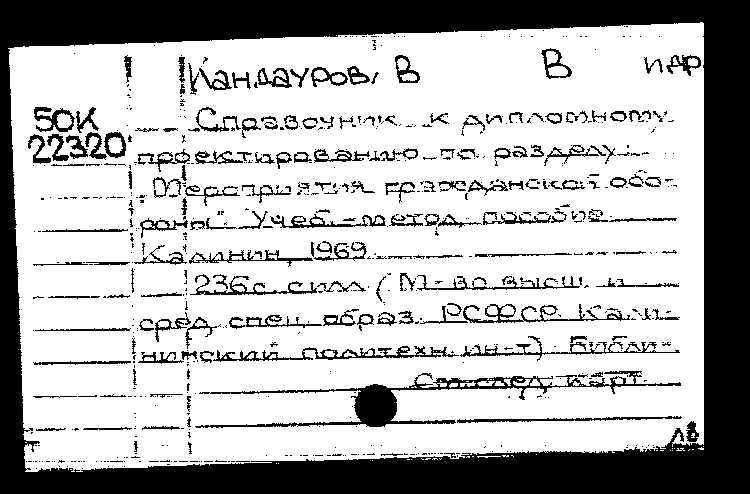 Кандауров, В В и др.
50К
22320
Справочник к дипломному
проектированию по разделу:
"Мероприятия гражданской обо-
роны". Учеб.-метод. пособие.
Калинин, 1969.
236 с. с илл (М-во высш. и
сред. спец. образ. РСФСР. Кали-
нинский политехн. ин-т) Библи-
См. след. карт.